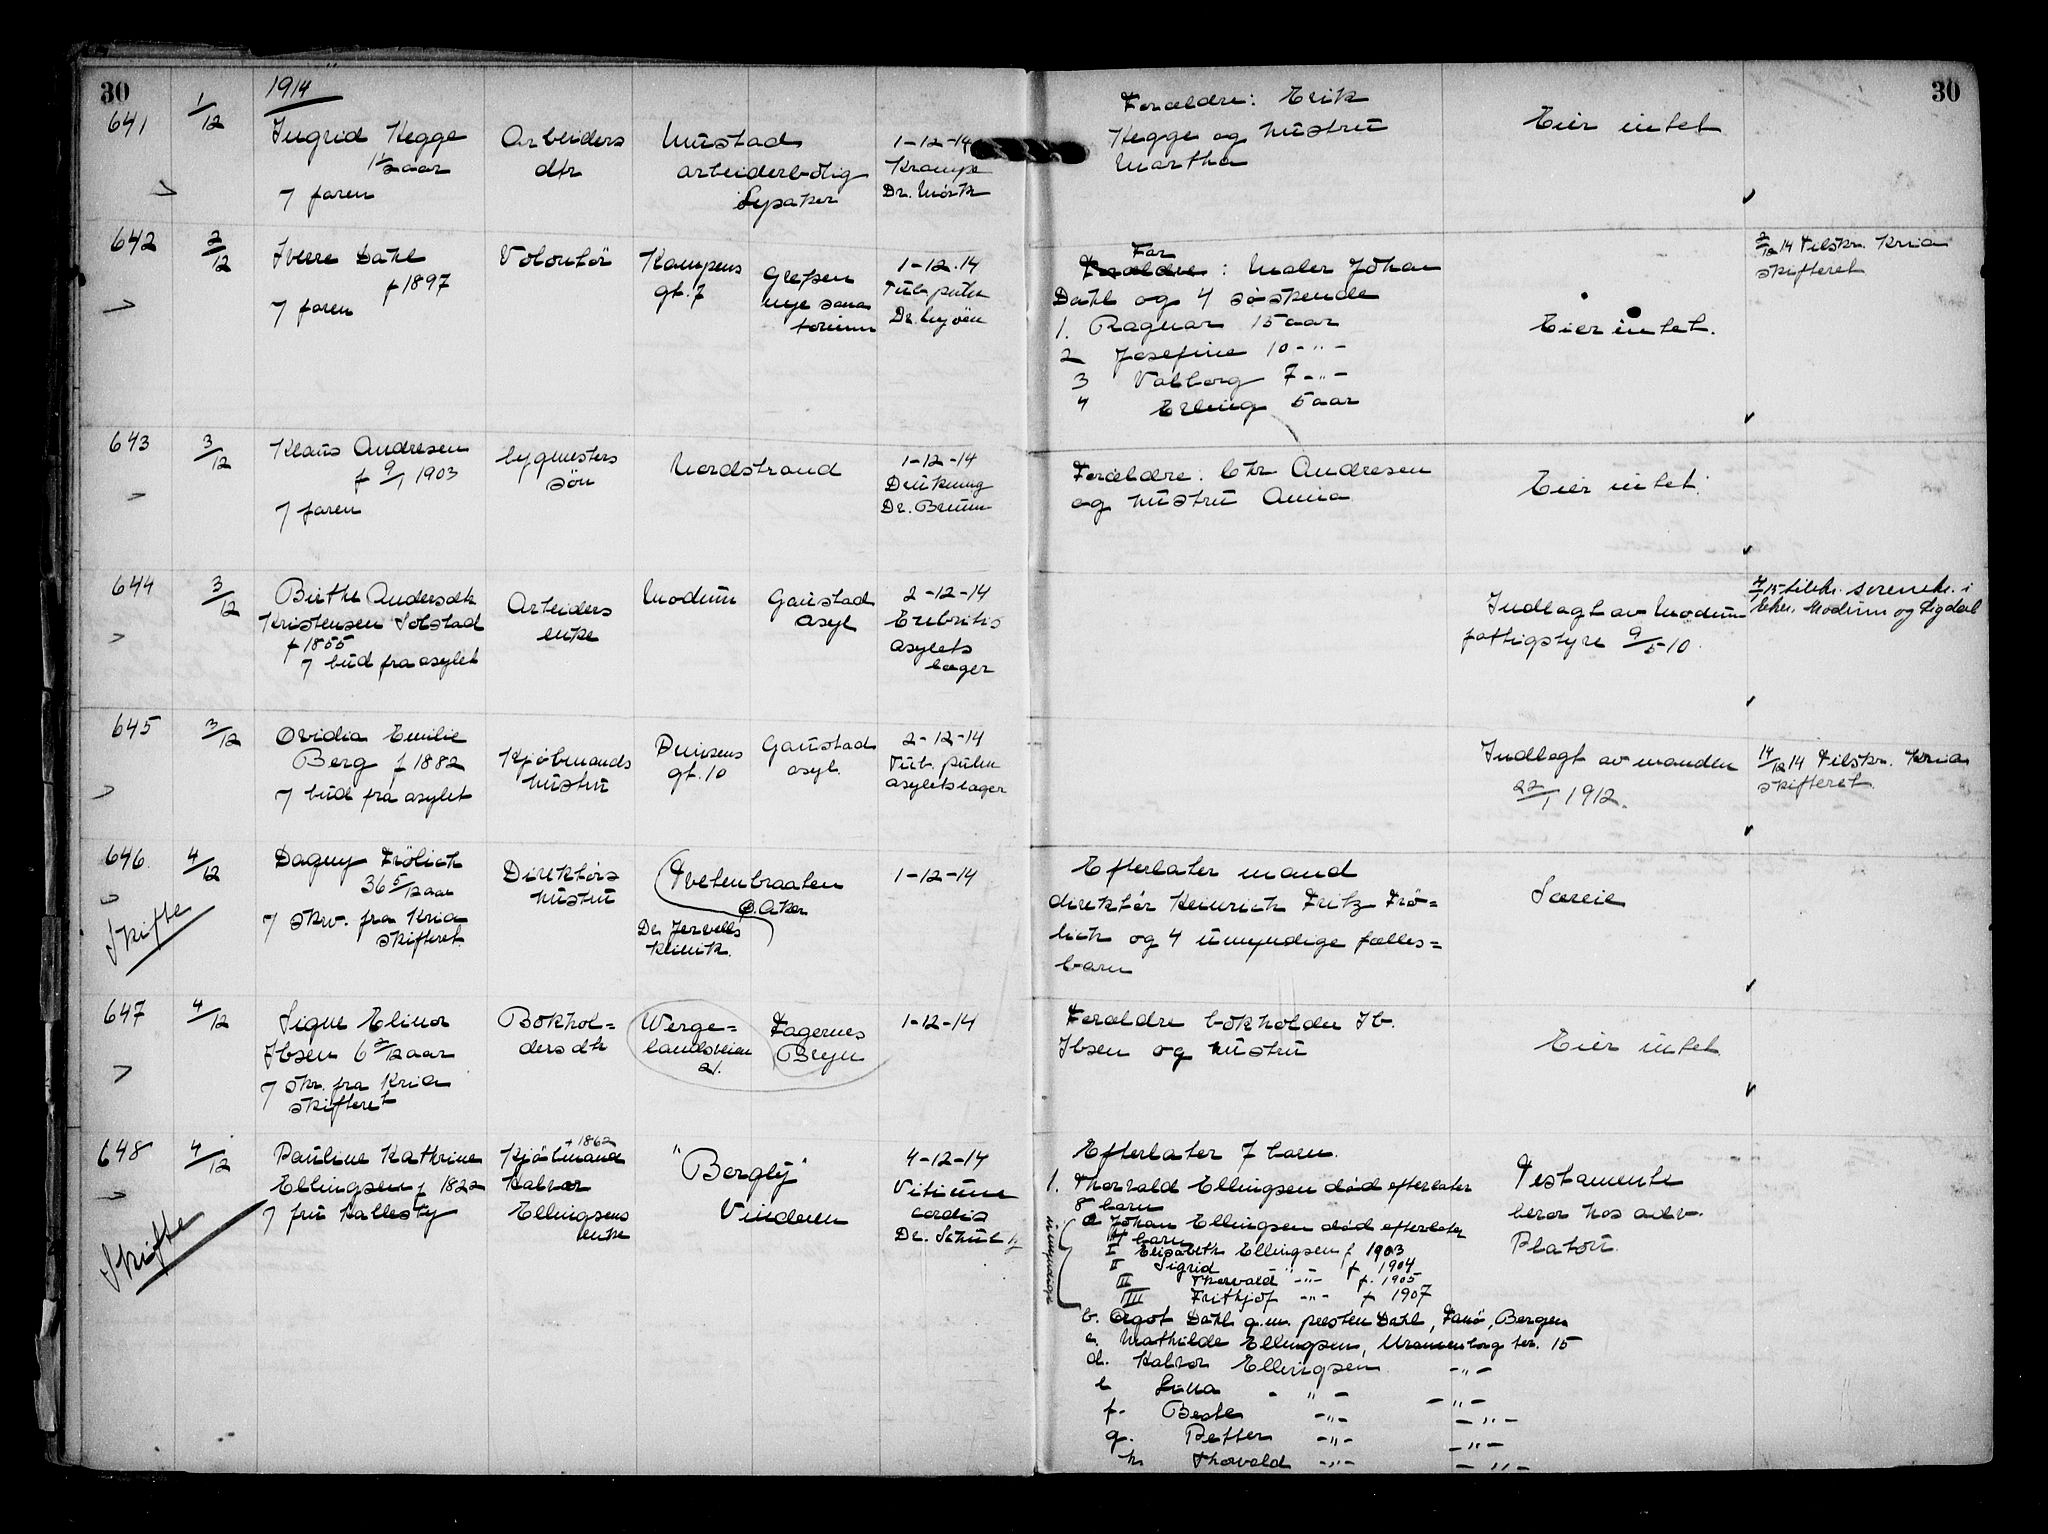 30
1914
30
641
1/12
Ingrid Hegge
1 1/2 aar
7 faren
Arbeiders
dtr
Mustad
arbeiderbolig
Lysaker
1-12-14
Krampe
Dr. Mørk
Forældre: Erik
Hegge og hustru
Martha
Eier intet
642
2/12
Sverre Dahl
f 1897
7 faren
Volontör
Kampens
gt. 7
Grefsen
nye sana
torium
1-12-14
Tub. pulm
Far
Forældre: Maler Johan
Dahl og 4 søskende
1. Ragnar 15 aar
2 Josefine 10 -"-
3 Valborg 7 -"-
4 Erling 5 aar
Eier intet.
2/12 14 Tilskr. Kria
skifteret
643
3/12
Klaus Andresen
f 9/1 1903
7 faren
bygmesters
sön
Nordstrand
1-12-14
Drukning
Dr. Bruun
Forældre: Chr Andresen
og hustru Anna
Eier intet.
644
3/12
Birthe Andersdtr
Kristensen Solstad
f 1855
7 bud fra asylet
Arbeiders
enke
Modum
Gaustad
asyl
2-12-14
asylets
læger
Indlagt av Modum
fattigstyre 9/5-10.
Modum og Sigdal
645
3/12
Ovidia Emilie
Berg f 1882
7 bud fra asylet
Kjøbmands
hustru
gt. 10
Gaustad
asyl.
2-12-14
Tub. pulm
asylets læger
Indlagt av manden
22/1 1912.
14/12 14 Tilskr. Kria
skifteret.
646.
4/12
Skifte
Dagny Frölich
36 5/12 aar
7 skr. fra Kria
skifteret
Direktørs
hustru
Tvetenbraaten
Ø. Aker
Dr. Jervells
klinik.
1-12-14
Efterlater mand
direktør Heinrich Fritz Frö=
lich og 4 umyndige fælles=
barn
Særeie
647
4/12
Signe Elinor
Ibsen 6 2/12 aar
7 skr. fra Kria
skifteret
Bokhol=
ders dtr
Werge=
landsveien
21.
Fagernes
Bryn
1-12-14
Forældre bokholder Ib.
Ibsen og hustru
Eier intet
648
4/12
Skifte
Pauline Kathrine
Ellingsen f 1822
7 fru Hallesby
+ 1862
Kjøbmand
Halvor
Ellingsens
enke
"Bergly"
Vinderen
4-12-14
Vitium
cordis
Dr. Schultz
Efterlater 7 barn.
1. Thorvald Ellingsen död efterlater
8 barn
a Johan Ellingsen död efterlater
4 barn
umyndige
I Elisabeth Ellingsen f 1903
II Sigrid " f 1904
III Thorvald -"- f. 1905
IIII Frithjof -"- f 1907
b. Agot Dahl g.m. presten Dahl, Fanö, Bergen
c. Mathilde Ellingsen, Uranienborg ter. 15
d. Halvor Ellingsen -"-
e -"- -"-
f. -"- -"-
g. Petter -"- -"-
h Thorvald -"- -"-
Testamente
beror hos adv.
Platou.